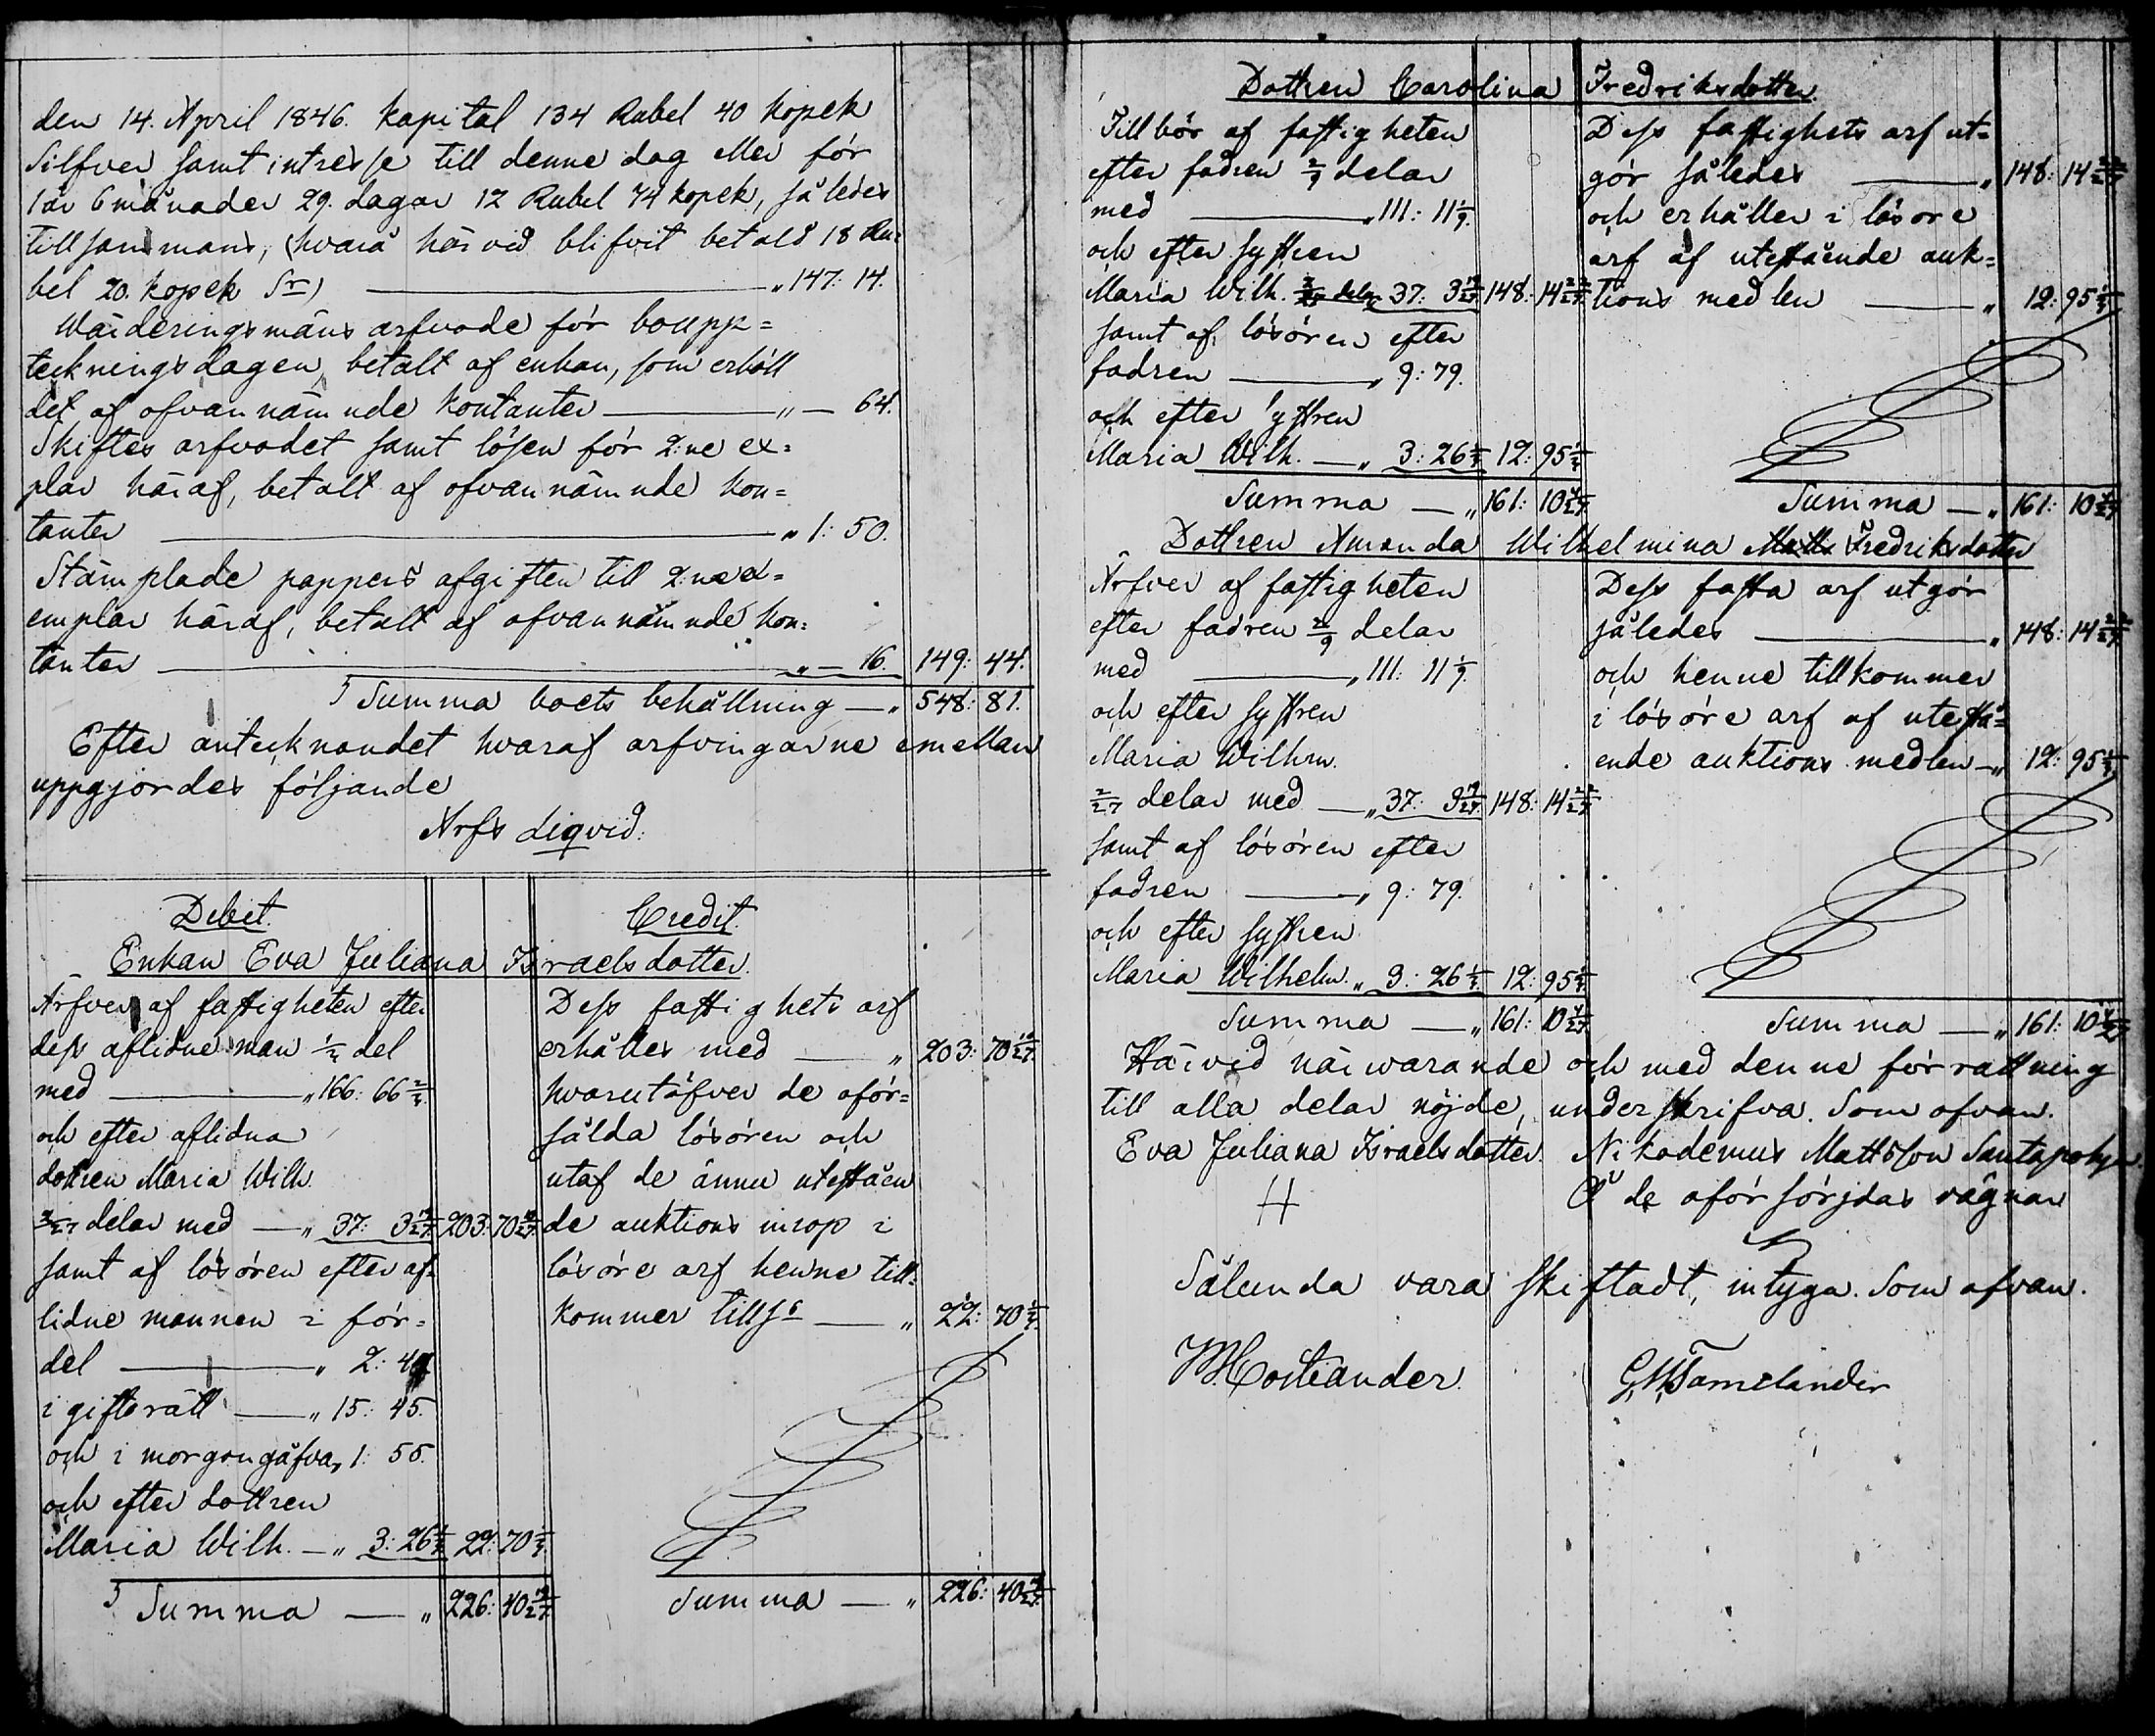 den 14. April 1846. kapital 134 Rubel 40 kopek
Silfver samt intresse till denne dag Mer för
1 år 6 månader 29. dagar 12 Rubel 74 kopek, således
tillsammans, (hvarå härvid blifvit betalt 18 Ru=
bel 20. kopek Sr) — „ 147: 14.
Wärderingsmäns arfvode för boupp=
teckningsdagen, betalt af enkan, som erhöll
det af ofvannämnde kontanter — „ — 64.
Skiftes arfvodet samt lösen för 2:ne ex=
plar häraf, betalt af ofvannämnde kon=
tanter — „ 1: 50.
Stämplade pappers afgiften till 2:ne ex=
emplar häraf, betalt af ofvannämnde kon=
tanter — „ — 16. 149: 44.
Summa boets behållning — „ 548: 81.
Efter antecknandet hvaraf arfvingarne emellan
uppgjordes följande
Arfs liqvid.
Debet. Credit.
Enkan Eva Juliana Israelsdotter.
Ärfver af fastigheten efter
dess aflidne man ½ del
med — „ 166: 66 ⅔
och efter aflidna
dottren Maria Wilh.
2/27 delar med — „ 37: 3 19/27. 203: 70 10/27.
samt af lösören efter af=
lidne mannen i för=
del — „ 2: 44
i giftorätt — „ 15: 45.
och i morgongåfva „ 1: 55.
och efter dottren
Maria Wilh. — „ 3: 26 ⅓ 22: 70 ⅓.
Summa — „ 226: 40 19/27
Dess fastighets arf
erhålles med — „ 203: 70 10/27
hvarutöfver de oför=
sålda lösören och
utaf de ännu uteståen
de auktions inrop i
lösöre arf henne till=
kommer tills — „ 22: 70 ⅓.
Summa — „ 226: 40 19/27
Dottren Carolina Fredriksdotter.
Tillhör af fastigheten
efter fadren 2/9 delar
med — „ 111: 11 1/9.
och efter systren
Maria Wilh. 2/27 delar 37: 3 19/27 148: 14 22/27
samt af lösören efter
fadren — „ 9: 79.
och efter systren
Maria Wilh. — „ 3: 26 ⅓ 12: 95 ⅓
Summa — „ 161: 10 4/27
Dess fastighets arf ut=
gör således — „ 148: 14 22/27
och erhåller i lösöre
arf af utestående auk=
tions medlen — „ 12: 95 ⅓
Summa — „ 161: 10 4/27
Dottren Amanda Wilhelmina Matts Fredriksdotter
Ärfver af fastigheten
efter fadren 2/9 delar
med — „ 111: 11 1/9.
och efter systren
Maria Wilhm.
2/27 delar med — „ 37: 3 19/27 148: 14 22/27
samt af lösören efter
fadren — „ 9: 79.
och efter systren
Maria Wilhelm. „ 3: 26 ⅓ 12: 95 ⅓
Summa — „ 161: 10 4/27
Dess fasta arf utgör
således — „ 148: 14 22/27
och henne tillkommer
i lösöre arf af utestå=
ende auktions medlen — „ 12: 95 ⅓
Summa — „ 161: 10 4/27
Härvid närwarande och med denne förrättning
till alla delar nöjde, underskrifva. Som ofvan.
Eva Juliana Israelsdotter. Nikodemus Mattsson Santapohja.
Å de oförsörjdas vägnar
Sålunda vara skiftadt, intyga. Som ofvan.